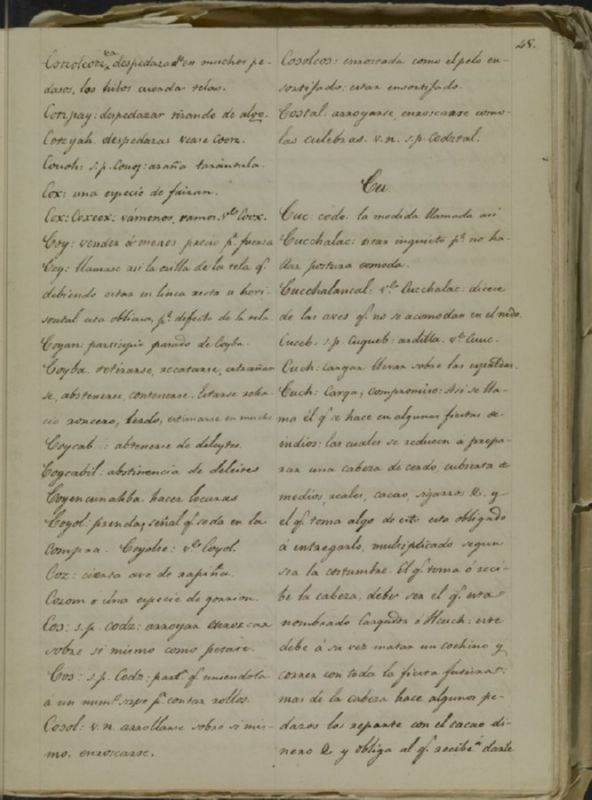 48.
Cotzolcotz: despedazado en muchos pe-
dasos, los hilos cuerda telas.
Cotzpay: despedazar tirando de algo.
Cotzyah. despedazar vease Cootz.
Couoh: s.p. Couoj: araña tarántula.
Cox: una especie de faisan.
Cox: Coxeex: vámonos, vamos. v.e Coox.
Coy: vender á menos precio p.r fuerza
Coy: llamase asi la orilla de la tela q.e
debiendo estar en linea recta u hori-
sontal esta obliqua, p.r defecto de la tela.
Coyan: participio pasado de Coyba.
Coyba. retirarse, recatarse, extrañar
se, abstenerse, contenerse. Estarse reha-
cio roncero, lerdo, estimarse en mucho
Coycab: abstenerse de deleytes.
Coycabil: abstinencia de deleites
Coyencunaliba. hacer locuras
Coyol: prenda, señal q.e se da en la
compra. Coyolte: v.e Coyol.
Coz: cierta ave de rapiña.
Cozom ó una especie de gorrion.
Cos: s.p. Codz: arroyar enroscar
sobre si mismo como petate.
Cos: s.p. Codz: part.a q.e uniendola
á un num.o sirve p.a contar rollos.
Cosol: v.n. arrollarse sobre si mis-
mo. enroscarse.
Cosolcos: enroscada como el pelo en-
sortijado: estar ensortijado.
Costal. arroyarse, enroscarse como
las culebras. v.n. s.p. Codztal.
Cu
Cuc: codo. la medida llamada asi
Cucchalac: estar inquieto p.r no ha-
llar postura comoda.
Cucchalancal: v.e Cucchalac: dicese
de las aves q.e no se acomodan en el nido.
Cuceb. s.p. Cuqueb: ardilla. v.e Cuuc.
Cuch: cargar llevar sobre las espaldas.
Cuch: Carga, compromiso: Asi se lla-
ma él q.e se hace en algunas fiestas de
indios: las cuales se reducen á prepa-
rar una cabeza de cerdo, cubierta de
medios, reales, cacao, sigarros &. y
el q.e toma algo de esto esta obligado
á entregarlo, multiplicado segun
sea la costumbre. El q.e toma ó reci-
be la cabeza, debe ser el q.e esta
nombrado Carguista ó Hcuch: este
debe á su vez matar un cochino y
correr con toda la fiesta futura:
mas de la cabeza hace algunos pe-
dazos los reparte con el cacao di-
nero & y obliga al q.e recibe á darle